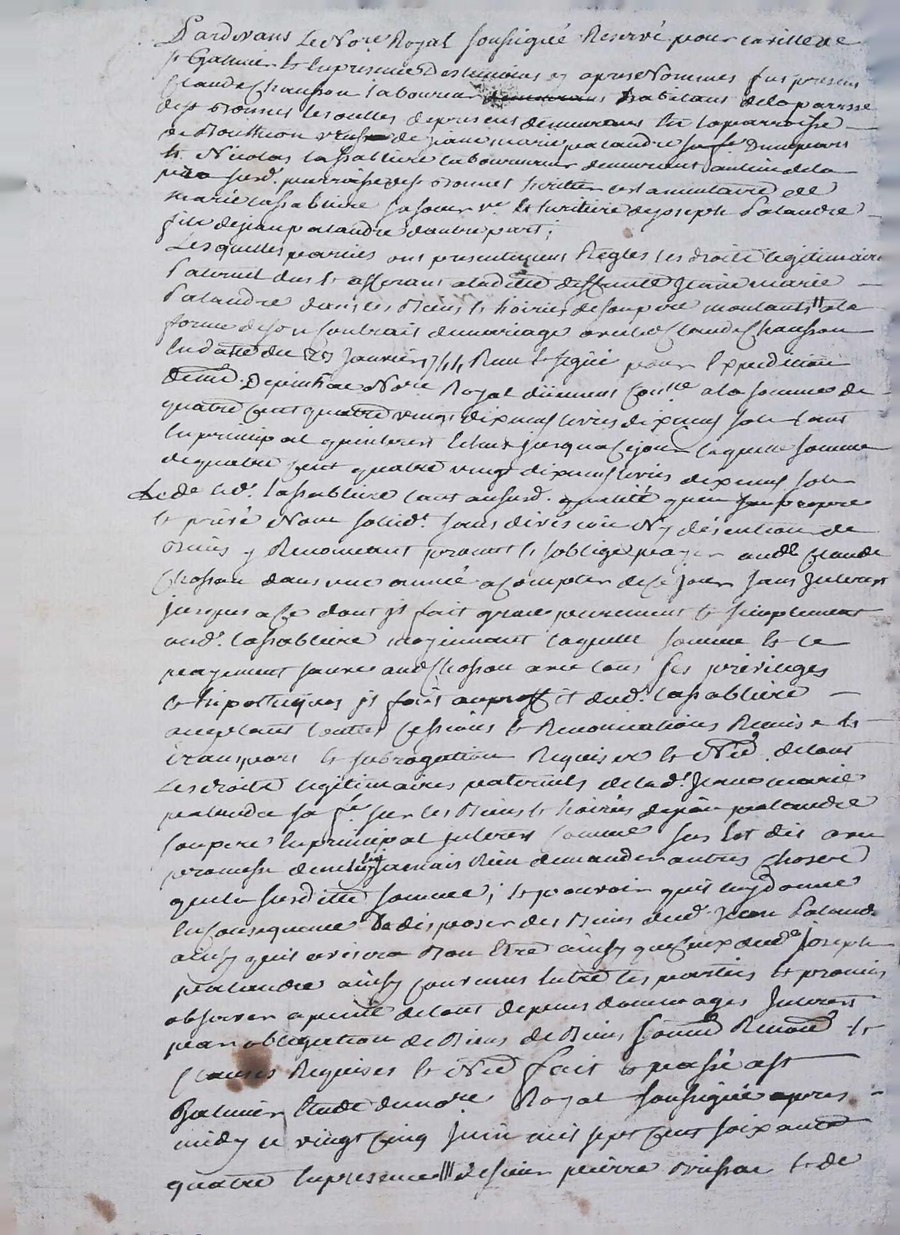 Pardevans le No.re Royal soussigné Reservé pour la ville de
st Galmier & en presence des temoins cy apres Nommés fus presens
Claude Chausson laboureur habitans de la parroisse
de st Bonnet les oulles de presens demeurans en la parroisse
de Bouttion veuf de jeane marie palandre sa fe d'une part
& Nicolas lassabliere laboureur demeurant au lieu de la
susd. parroisse de st Bonnet heritier testamentaire de
marie lassabliere sa soeur ve & heritiere de joseph Palandre
fils de jean palandre d'autre part;
Lesquelles parties ont presentement Reglés les droits legitimaires
Paternel dus & afferant a laditte deffunte jeane marie
Palandre dans les Biens & hoiries de son pere montants a la
forme de son contrait de mariage avec led Claude Chausson
en datte du 27 janvier 1744 Reçu & signé pour l'expedition
Depinhac No.re Royal düement con.lé a la somme de
quatre cent quatre vingt dix neuf livres dix neuf sols tant
en principal qu'interets echus jusqu'a ce jour laquelle somme
de quatre cent quatre vingt dix neuf livres dix neuf sols
led. lassabliere tant ausd. qualité qu'en son propre
& privé Nom solid.t sans division Ny discution de
Biens y Renonceant promet & s'oblige payer aud. Claude
Chosson dans une année a compter de ce jour sans interest
jusques a ce dont il fait grace purement & simplement
aud. lassabliere moyennant laquelle somme & le
payement sauve aud Chosson avec tous ses privileges
& hipotteques il fait au proffit dud. lassabliere
acceptant toutes cessions & Renonciations Remise &
transport & subrogation Requises & Nécs de tous
Les droits legitimaires paternels de lad. jeane marie
palandre sa fe sur les Biens & hoiries de jean palandre
son pere en principal interets comme sus est dit avec
promesse de ne luy jamais Rien demander autres choses
que la susditte somme; & pouvoir qu'il luy donne
en consequence de disposer des Biens dud. jean Palandre
ainsy qu'il avisera Bon être ainsy que ceux dud. joseph
palandre ainsy convenus entre les parties & promis
observer a peine de tous depens dommages interests
par obligation de Biens de Biens soum. Renon. &
clauses Requises & Néc fait & passé a st
Galmier etude du no.re Royal soussigné apres
midy le vingt cinq juin mil sept cent soixante
quatre en presence de sieur pierre Brissac & de